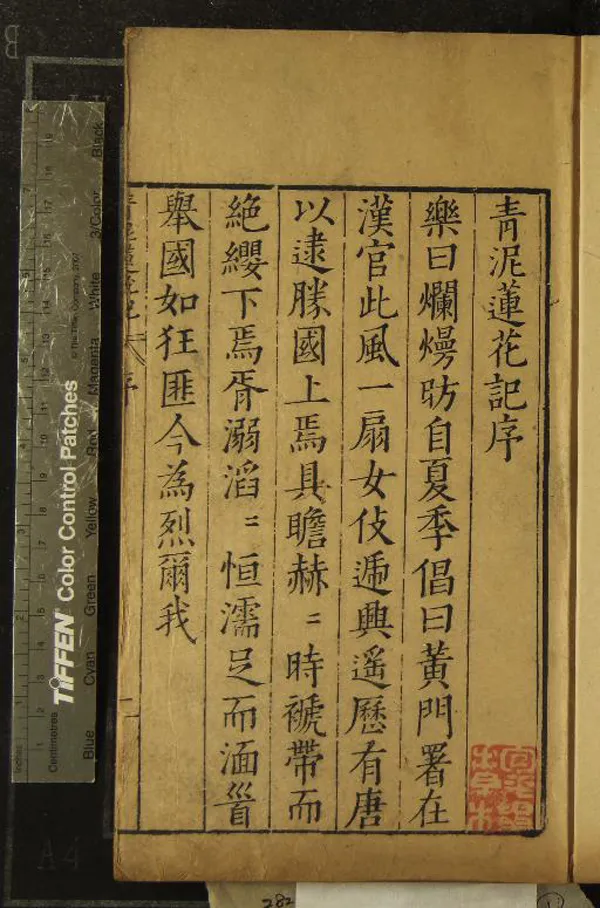 青泥蓮花記序
樂曰爛熳昉自夏季倡曰黃門署在
漢官此風一扇女伎遞興遥歷有唐
以逮勝國上焉具瞻赫〻時褫帶而
絶纓下焉胥溺滔〻恒濡足而湎首
舉國如狂匪今為烈爾我
青泥蓮花記 序
一
Inches
Centimetres
TIFFEN Color Control Patches
© The Tiffen Company, 2007
Blue
Cyan
Green
Yellow
Red
Magenta
White
3/Color
Black
B
A4
282